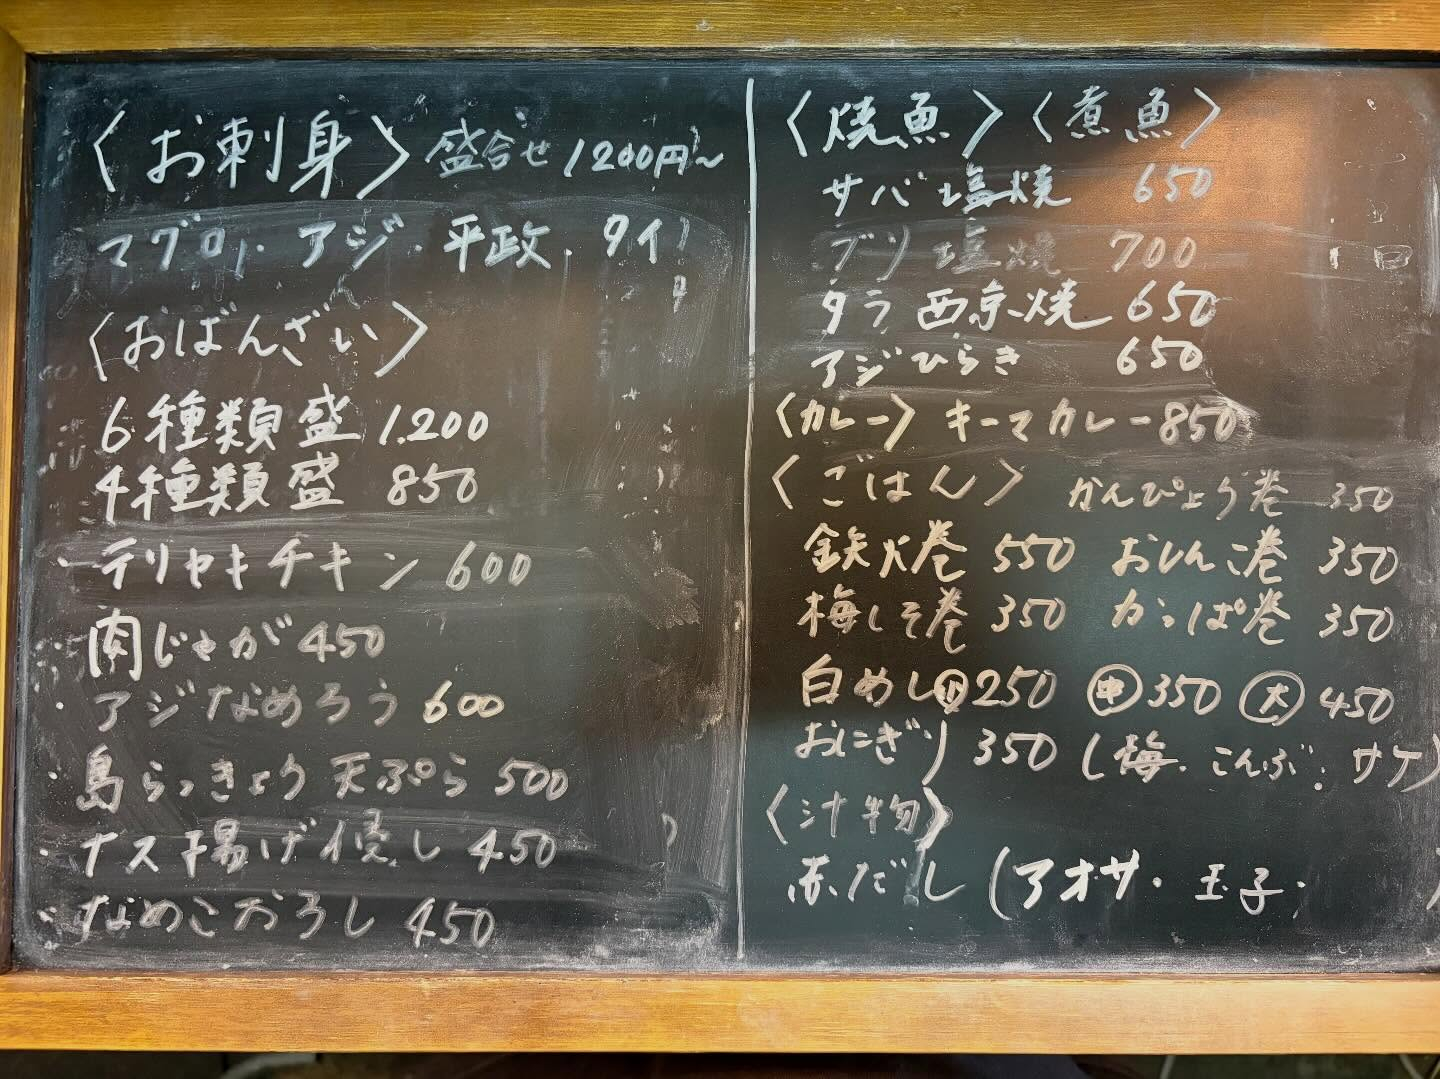 〈お刺身〉盛合せ 1200円〜
マグロ・アジ・平政・タイ
〈おばんざい〉
6種類盛 1.200
4種類盛 850
・テリヤキチキン 600
肉じゃが 450
・アジなめろう 600
・島らっきょう天ぷら 500
・ナス揚げ浸し 450
・なめこおろし 450
〈焼魚〉〈煮魚〉
サバ塩焼 650
ブリ塩焼 700
タラ西京焼 650
アジひらき 650
〈カレー〉キーマカレー 850
〈ごはん〉 かんぴょう巻 350
鉄火巻 550 おしんこ巻 350
梅しそ巻 350 かっぱ巻 350
白めし㊙小250 ㊥350 (大)450
おにぎり 350 (梅・こんぶ・サケ)
〈汁物〉
赤だし (アオサ・玉子・ )